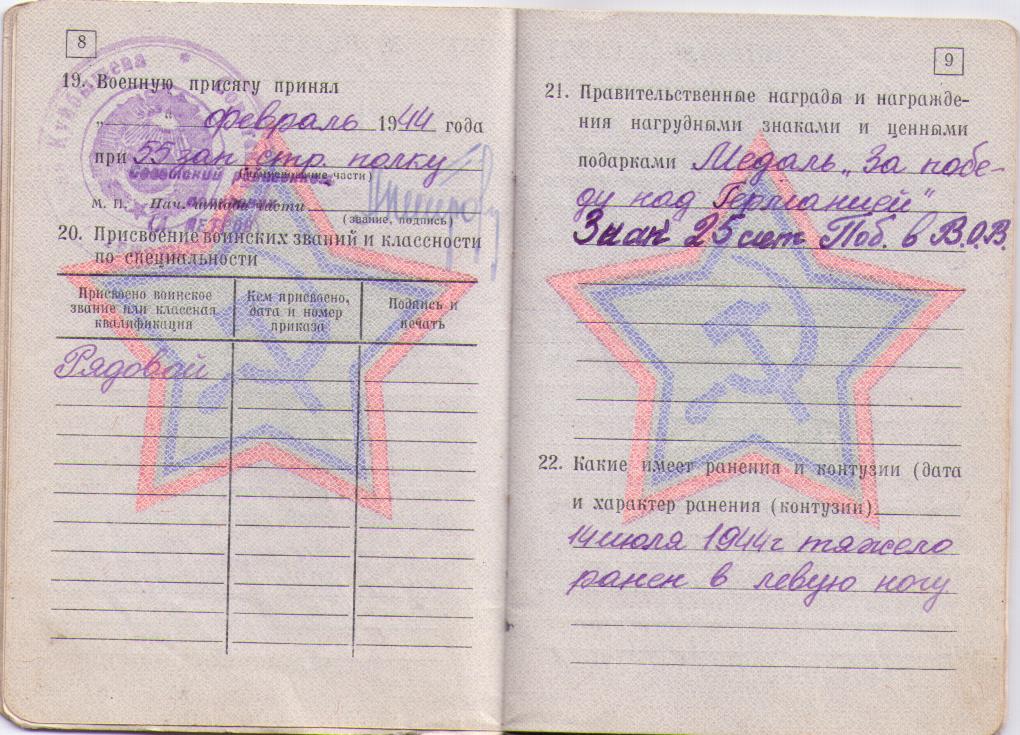 8
19. Военную присягу принял
„ “ февраль 1944 года
при 55 зап. стр. полку
(наименование части)
М. П. Нач. штаба части
(звание, подпись)
20. Присвоение воинских званий и классности
по специальности
Присвоено воинское звание или классная квалификация
Кем присвоено, дата и номер приказа
Подпись и печать
Рядовой
9
21. Правительственные награды и награжде-
ния нагрудными знаками и ценными
подарками Медаль „За побе-
ду над Германией“
Знак 25 лет Поб. в В.О.В.
22. Какие имеет ранения и контузии (дата
и характер ранения (контузии)
14 июля 1944 г тяжело
ранен в левую ногу